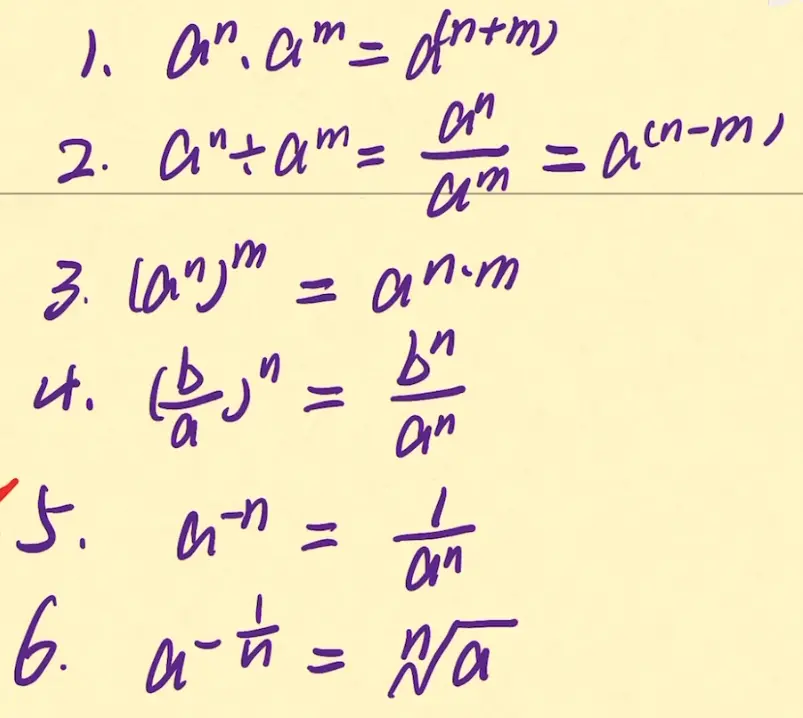 1. aⁿ · aᵐ = a⁽ⁿ⁺ᵐ⁾
2. aⁿ ÷ aᵐ = aⁿ/aᵐ = a⁽ⁿ⁻ᵐ⁾
3. (aⁿ)ᵐ = a^(n·m)
4. (b/a)ⁿ = bⁿ/aⁿ
5. a⁻ⁿ = 1/aⁿ
6. a^(-1/n) = ⁿ√a